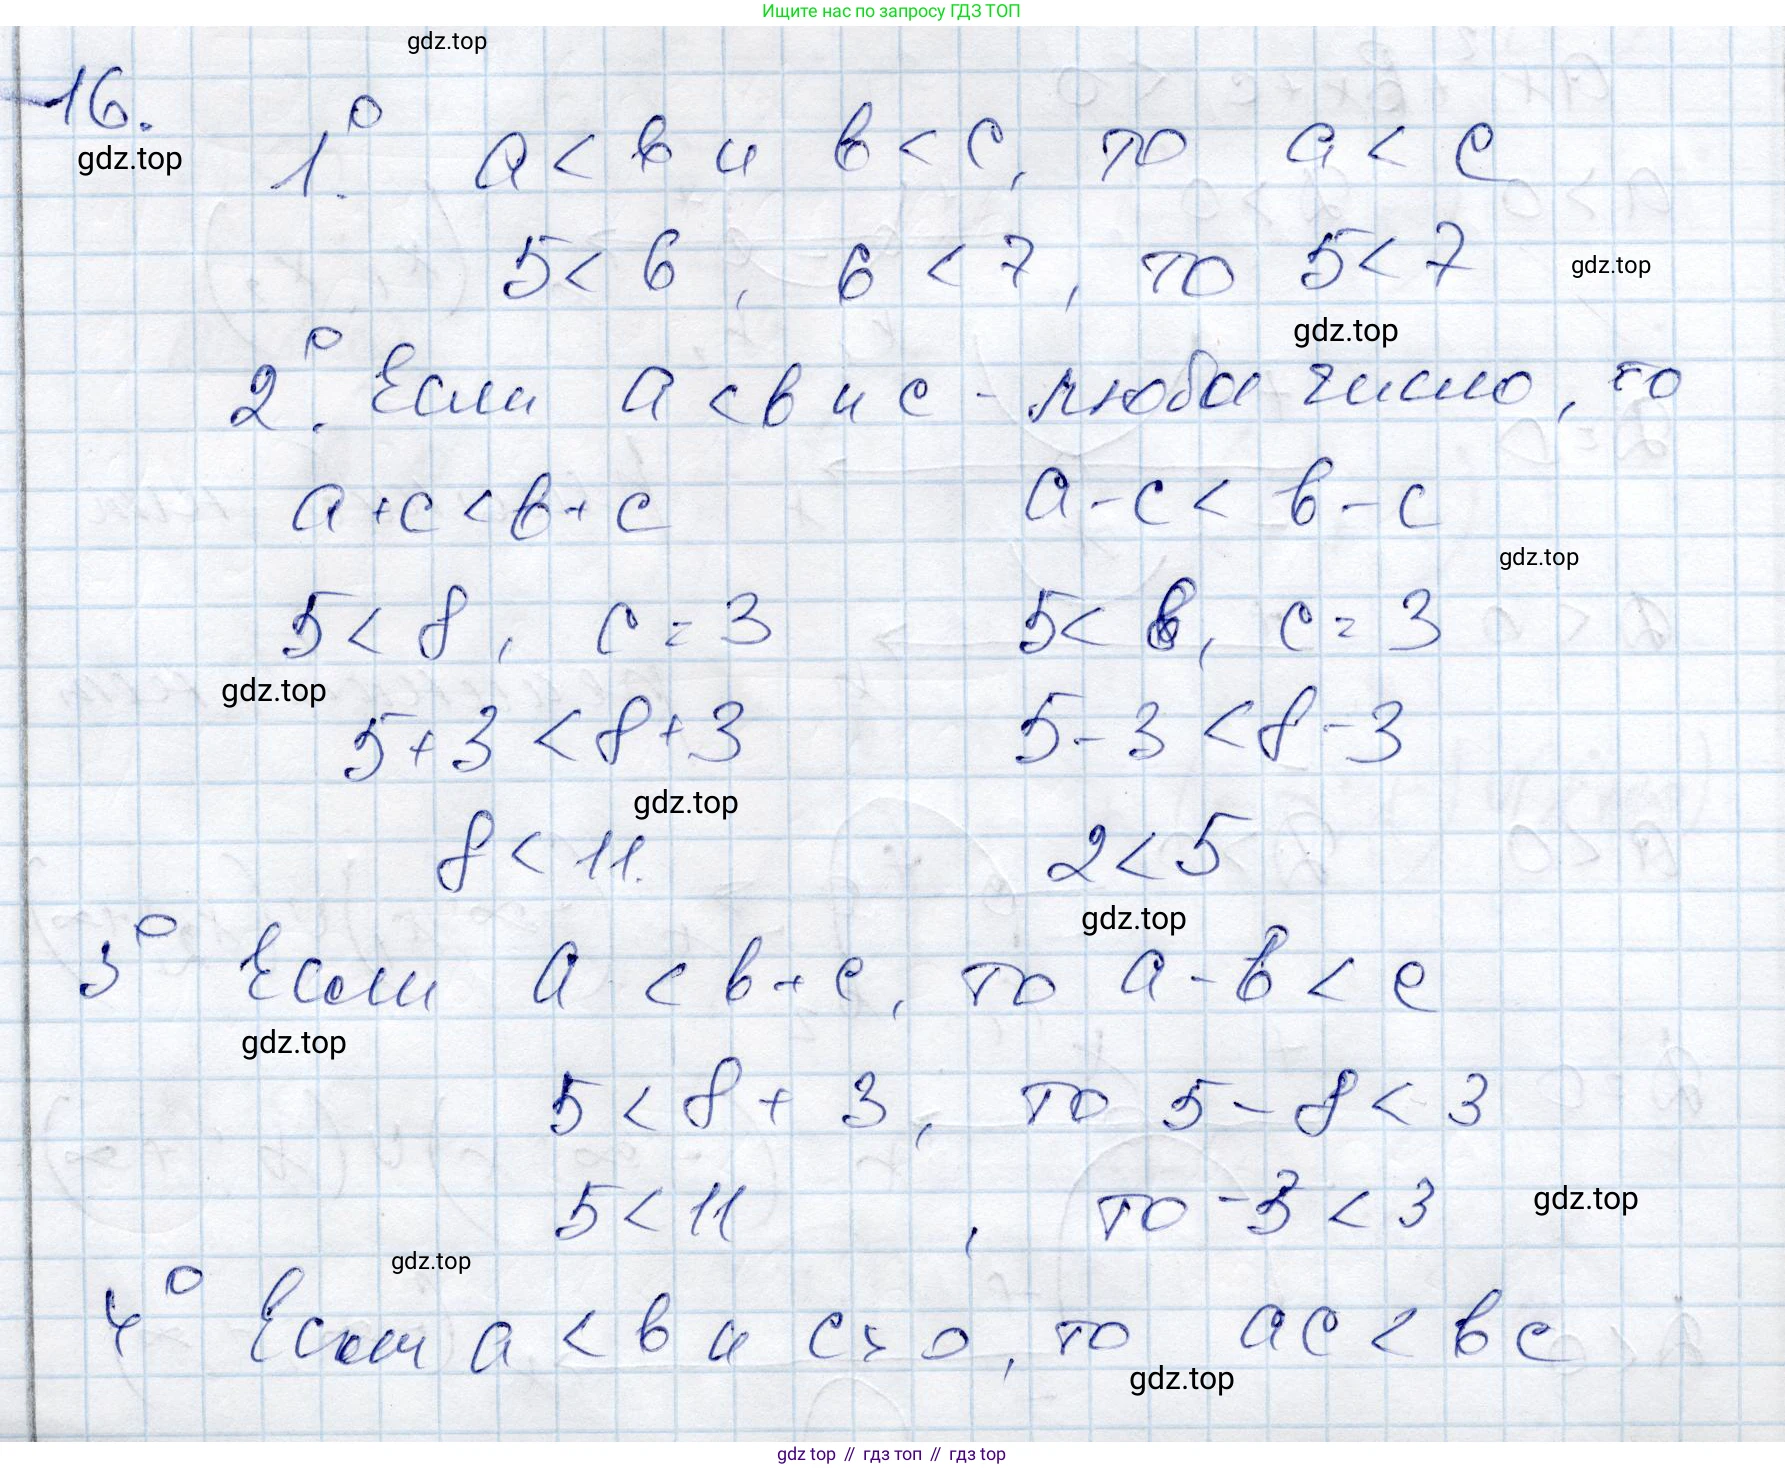 Ищите нас по запросу ГДЗ ТОП
gdz.top
16.
gdz.top
1.⁰ a < b и b < c, то a < c
5 < 6, 6 < 7, то 5 < 7
gdz.top
gdz.top
2.⁰ Если a < b и c - любое число, то
a + c < b + c a - c < b - c
gdz.top
5 < 8, c = 3 5 < 8, c = 3
gdz.top
5 + 3 < 8 + 3 5 - 3 < 8 - 3
gdz.top
8 < 11. 2 < 5
gdz.top
3⁰ Если a < b + c, то a - b < c
gdz.top
5 < 8 + 3, то 5 - 8 < 3
5 < 11, то -3 < 3
gdz.top
gdz.top
4⁰ Если a < b и c > 0, то ac < bc
gdz.top
gdz top // гдз топ // гдз top